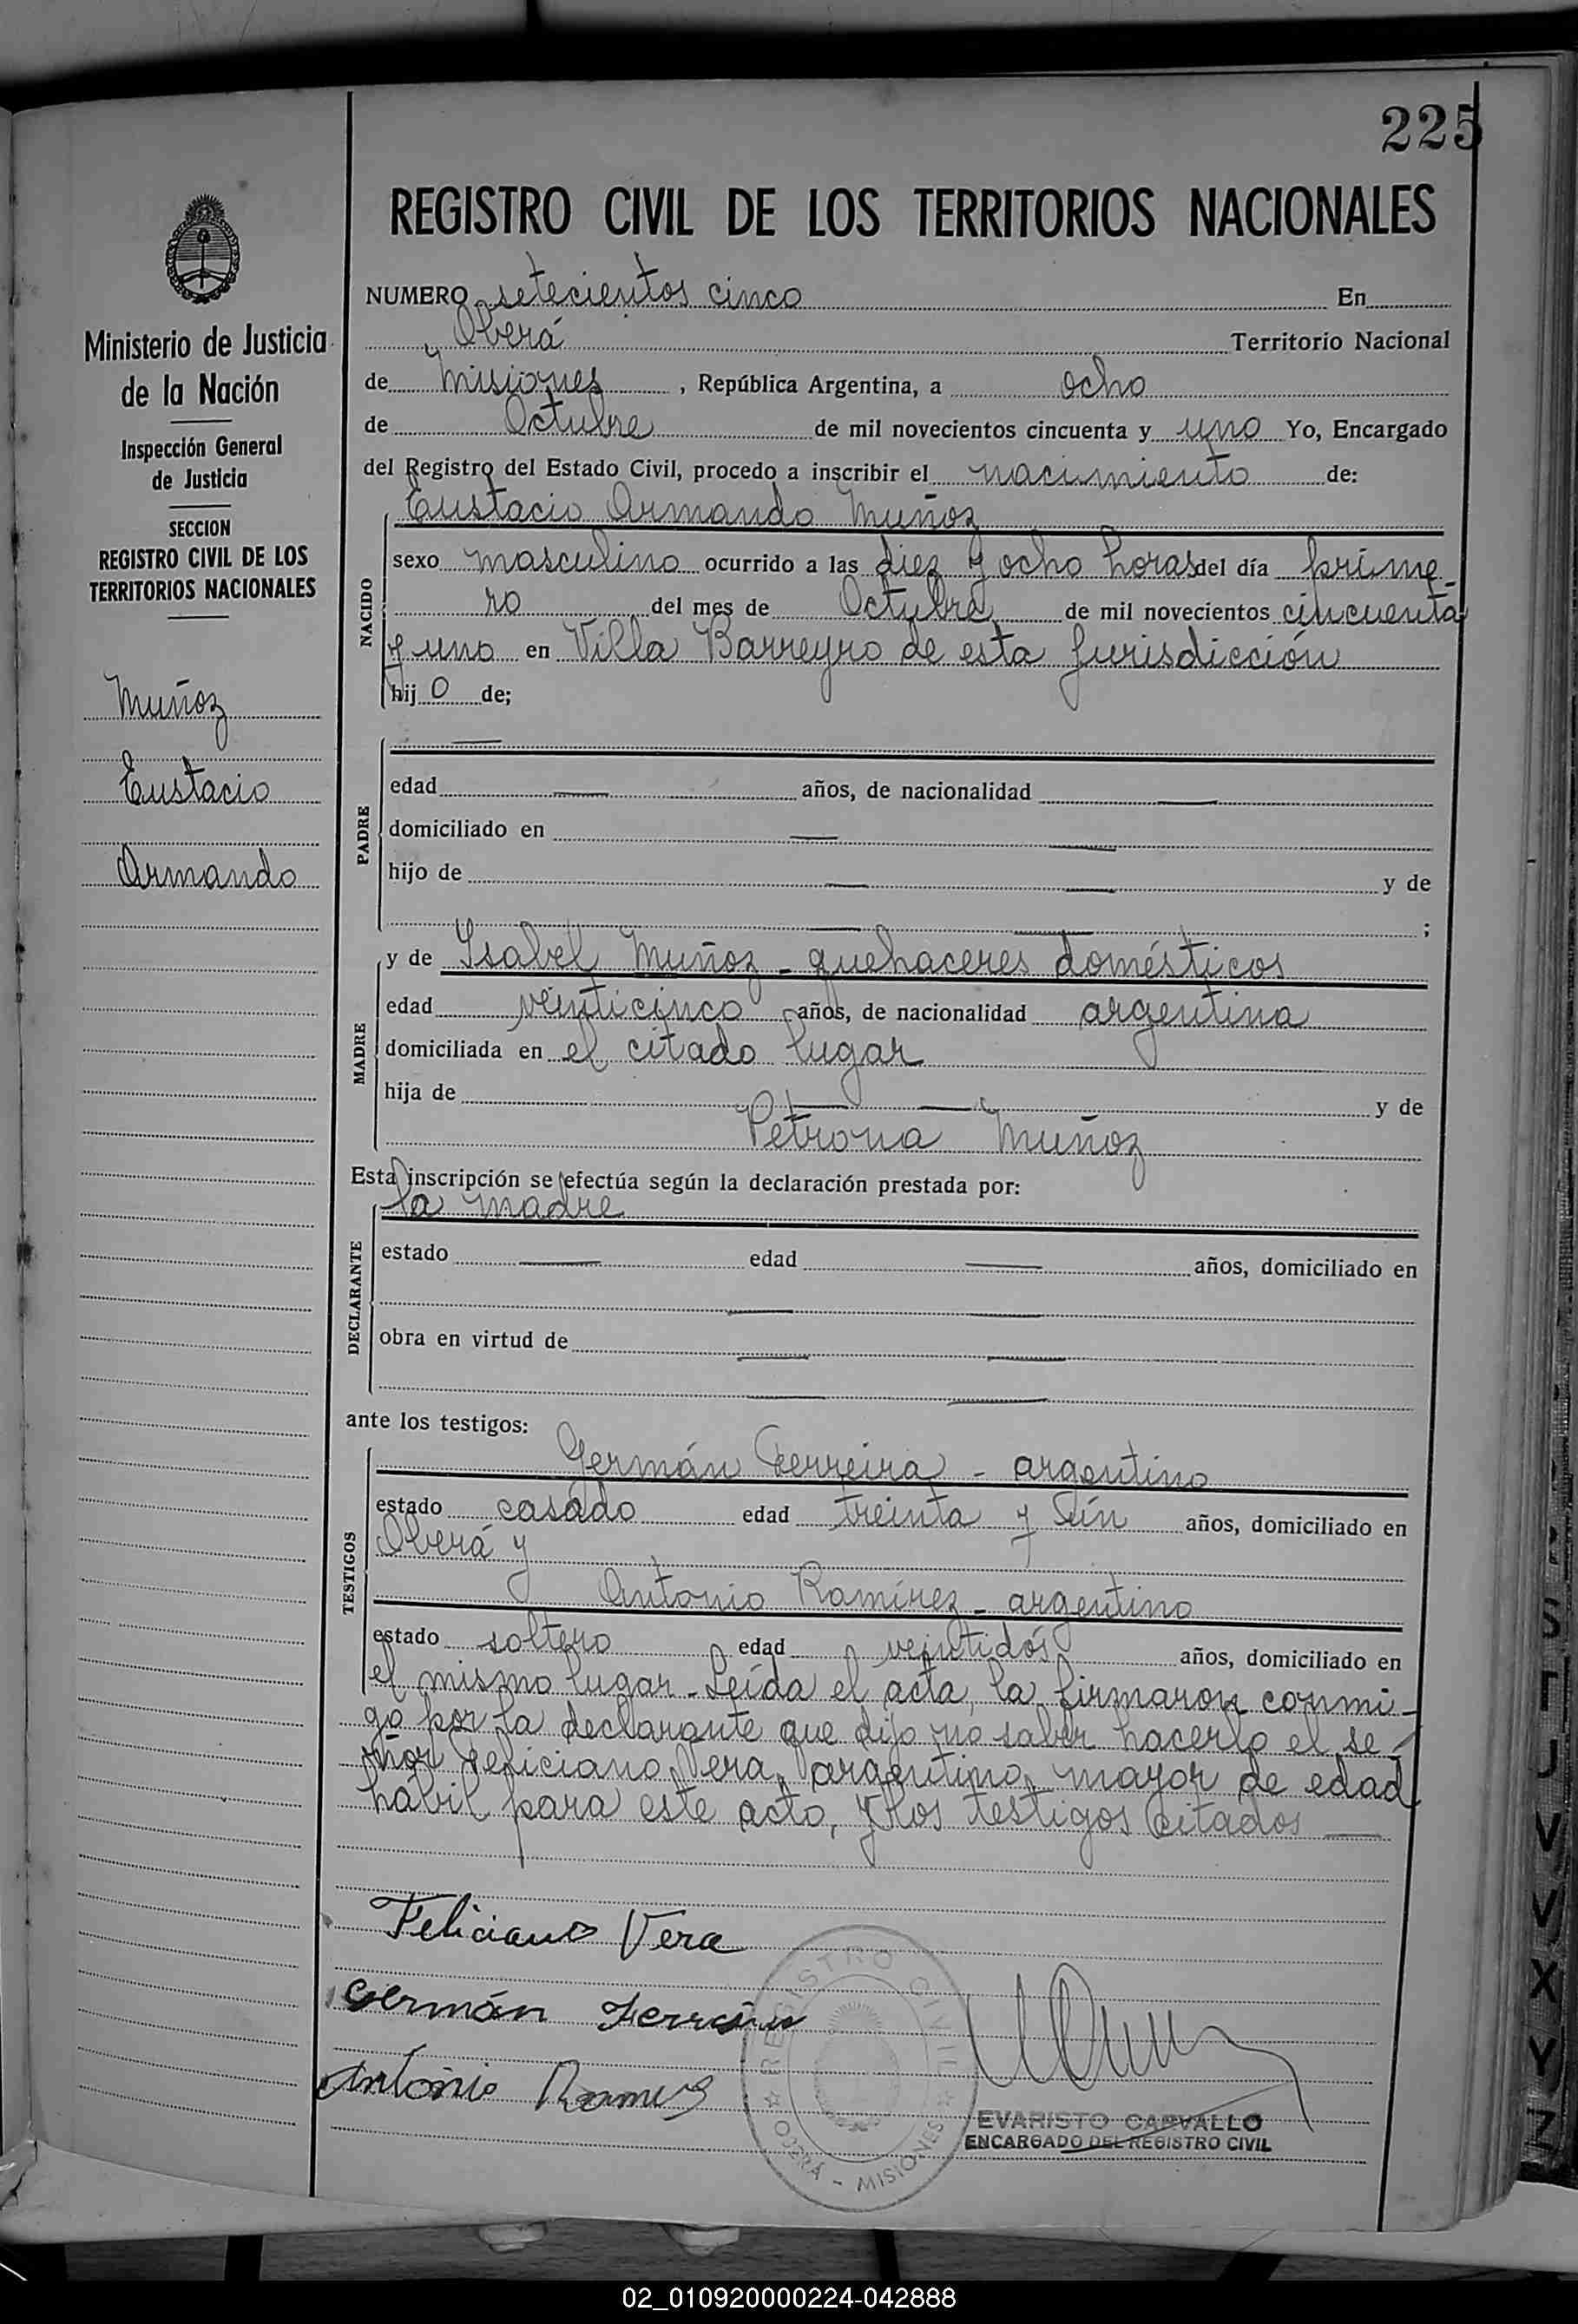 225
REGISTRO CIVIL DE LOS TERRITORIOS NACIONALES
Ministerio de Justicia
de la Nación
Inspección General
de Justicia
SECCION
REGISTRO CIVIL DE LOS
TERRITORIOS NACIONALES
Muñoz
Eustacio
Armando
NUMERO setecientos cinco En
Oberá Territorio Nacional
de Misiones , República Argentina, a ocho
de Octubre de mil novecientos cincuenta y uno Yo, Encargado
del Registro del Estado Civil, procedo a inscribir el nacimiento de:
Eustacio Armando Muñoz
NACIDO
sexo masculino ocurrido a las diez y ocho horas del día prime-
ro del mes de Octubre de mil novecientos cincuenta
y uno en Villa Barreyro de esta Jurisdicción
hij o de;
PADRE
edad años, de nacionalidad
domiciliado en
hijo de y de
;
MADRE
y de Isabel Muñoz - quehaceres domésticos
edad veinticinco años, de nacionalidad argentina
domiciliada en el citado lugar
hija de y de
Petrona Muñoz
Esta inscripción se efectúa según la declaración prestada por:
la madre
DECLARANTE
estado edad años, domiciliado en
obra en virtud de
ante los testigos:
TESTIGOS
Germán Ferreira - argentino
estado casado edad treinta y un años, domiciliado en
Oberá y
Antonio Ramírez - argentino
estado soltero edad veintidós años, domiciliado en
el mismo lugar - Leída el acta, la firmaron conmi-
go por la declarante que dijo no saber hacerlo el se-
ñor Feliciano Vera, argentino, mayor de edad
hábil para este acto, y los testigos citados —
Feliciano Vera
Germán Ferreira
Antonio
REGISTRO CIVIL
OBERÁ - MISIONES
EVARISTO CARVALLO
ENCARGADO DEL REGISTRO CIVIL
J
V
V
X
Y
Z
02_010920000224-042888